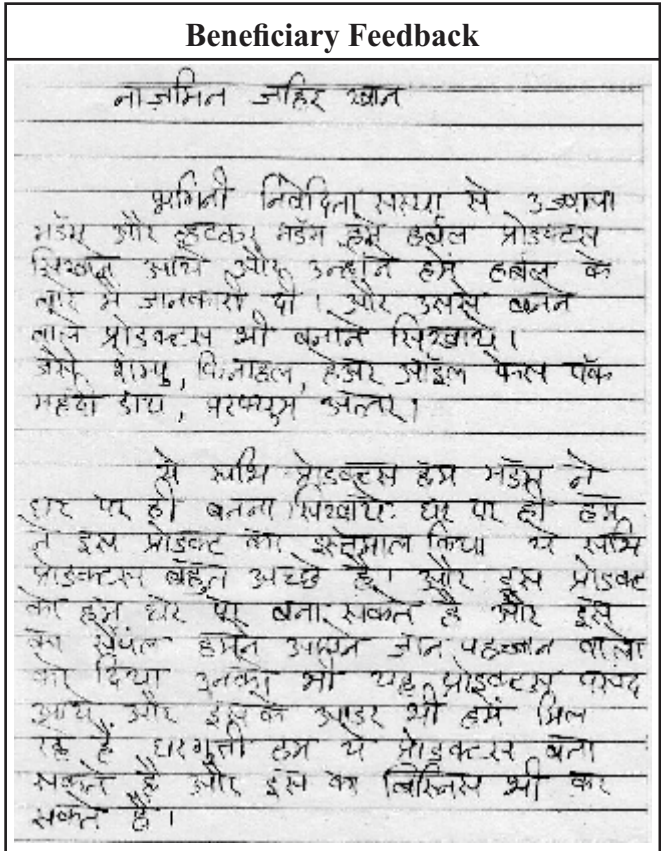 Beneficiary Feedback
नाजमिन जहिर खान
भगिनी निवेदिता संस्था से उज्वाला
मॅडम और मॅडम हमे हर्बल प्रोडक्टस
सिखाने आये और उन्होने हमे हर्बल के
बारे मे जानकारी दी। और उससे बनने
वाले प्रोडक्टस भी बनाने सिखाये।
जैसे शाम्पु, फिनाइल, हेअर ऑइल फेस पॅक
महेंदी डाय, परफ्युम अत्तर।
ये सभि प्रोडक्टस हमे मॅडम ने
घर पर ही बनना सिखाये घर पर ही हम
ने इस प्रोडक्ट का इस्तेमाल किया ये सभि
प्रोडक्टस बहुत अच्छे है। और इस प्रोडक्ट
को हम घर पर बना सकते है और इस
का सॅंपल हमने अपने जान पहच्चान वालो
को दिया उनको भी यह प्रोडक्टस पसंद
आये और इस के आडर भी हमे मिल
रहे हैं घरगुती हम ये प्रोडक्टस बना
सकते है और इस का बिस्निस भी कर
सकते है।